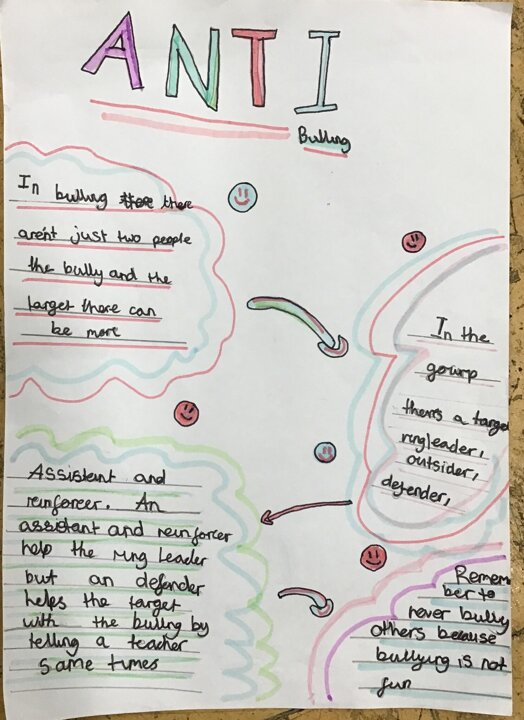 ANTI
Bulling
In bulling there
aren't just two people
the bully and the
target there can
be more
In the
gourp
thers a target
ringleader,
outsider,
defender,
Assistent and
reinforcer. An
assistant and reinforcer
help the ring leader
but an defender
helps the target
with the bulling by
telling a teacher
some times
Remem
ber to
never bully
others because
bullying is not
fun